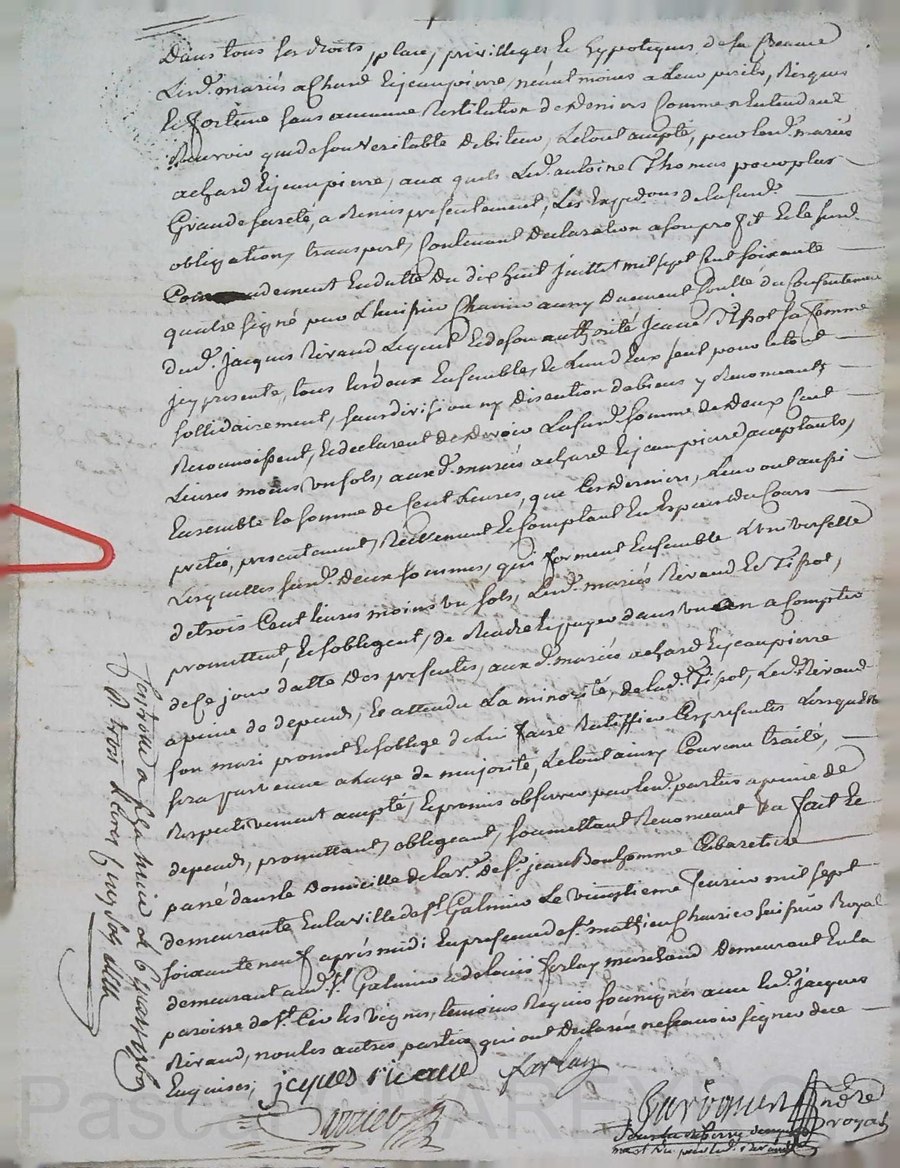 Dans tous ses droits, place, privilleges & hypoteques, de la Permre
Lesd. mariés achard & jeanpierre, neantmoins a leur perils, Risques
& fortune sans aucunne Restitution de deniers Comme
quide son Veritable debiteur, Le tout accepté, par lesd. mariés
achard & jeanpierre, aux quels Led. antoine Thomas pour plus
Grande sureté, a Remis presentement, Les Expeditions de la susd.
obligation, transport, Contenant declaration a son profit & le susd.
Commandement En datte du dix huit juillet mil sept Cent soixante
quatre signé par L'huissier
dud. Jacques Rivaud Lequel & de son authorité jeane Tissot sa femme
jcy presente, tous les deux Ensembles & L'un d'Eux seul pour le tout
sollidairement, sans division ny discution de biens y Renonceants
Reconnoissent, & declarent de devoir La susd. somme de Deux Cent
Livres moins un sols, auxd. mariés achard & jeanpierre acceptants,
Ensemble la somme de Cent Livres, que Ces derniers, Leur ont aussi
pretée, presentement, Réellement & Comptant En Espèces du Cours
Lesquelles susd. deux sommes, qui forment Ensemble L'universelle
de trois Cent livres moins un sols, Lesd. mariés Rivaud & Tissot,
promettent, & s'obligent, de Rendre & payer dans un an a Compter
de Ce jour datte des presentes, auxd. mariés achard & jeanpierre
a peine de depends, & attendu La minorité, de lad. Tissot, Led. Rivaud
son mari promet & s'oblige de Lui faire Ratiffier Ces presentes Lorsquelle
sera parvenue a L'age de majorité, Le tout ainsy Convenu traité,
Respectivement accepté, & promis observer par lesd. parties a peine de
depends, promettant, obligeant, soumettant Renonceant &a fait &
passé dans le Domicille de la v. de Sr. jean Bonhomme Cabaretiere
demeurante En la ville de St. Galmier Le vingtieme fevrier mil sept
soixante neuf après midi En presence de Sr. mathieu huissier Royal
demeurant aud. St. Galmier & de louis ferlay marchand demeurant En la
paroisse de St. Cir les vignes, temoins Requis soussignés avec led. jacques
Rivaud, non les autres parties qui ont declaré ne sçavoir signer de ce
Enquises, jcques rivaud ferlay
nore
royal
Controllé a St. Galmier le
R. trois livres sols
Pascal CHAREYRON